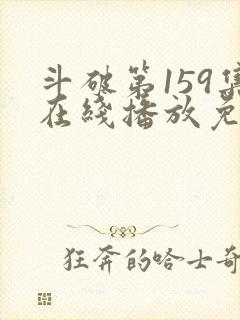 斗破第159集
在綫播放免
狂奔的哈士奇